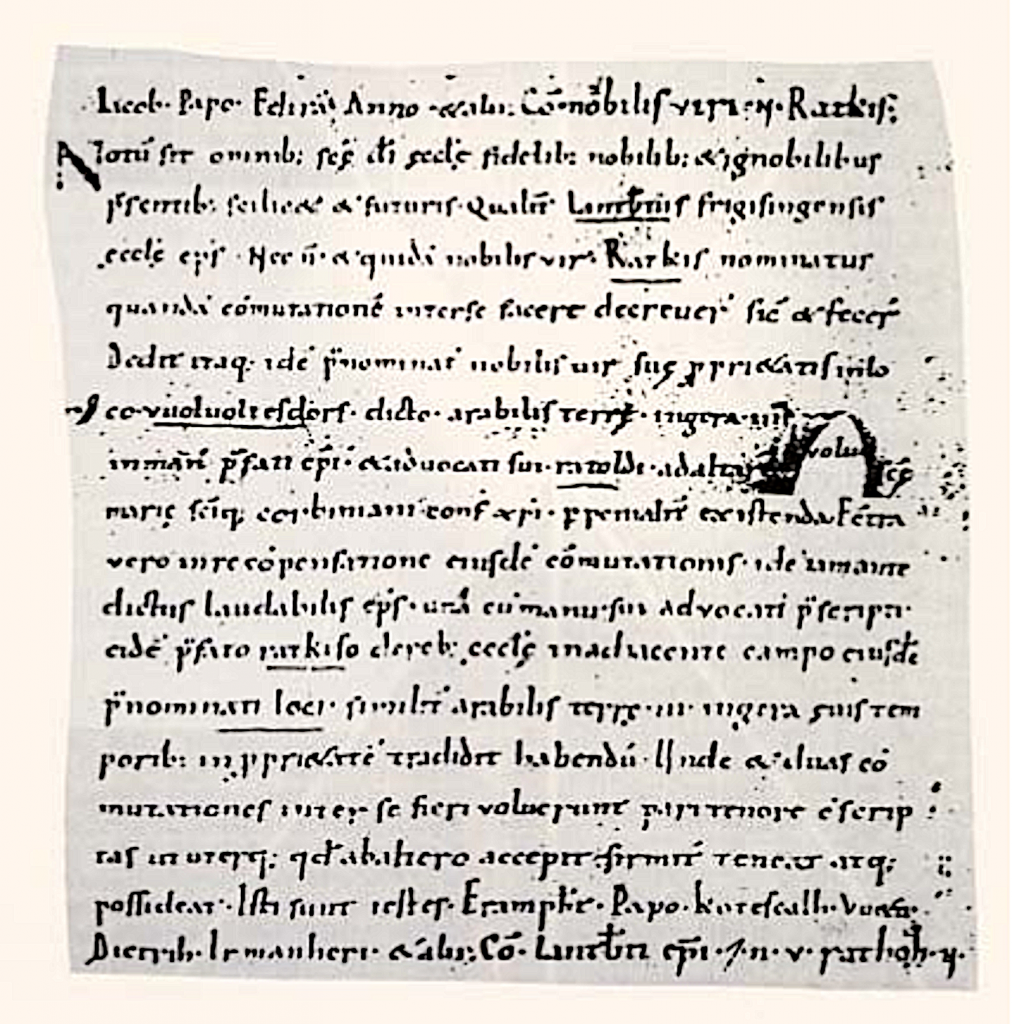 Papo. Anno & alii. Cō. nobilis viri. N. Ratkis.
Notū sit omnib; scē dī eccłę fidelib; nobilib; & ignobilibus
p̄sentib; scilic& & futuris. Qualit̄ Lantb̄tus frigisingensis
eccłę ep̄s. Nec n̄ & quidā nobilis vir Ratkis nominatus
quandā cōmutationē inter se facere decreuer̄ sic̄ & fecer̄
Dedit itaq; idē p̄nominat' nobilis uir suę ꝓpri&atis in lo
co uuoluoltesdorf dicto. arabilis terrę. iugera
in man̄ p̄fati ep̄i. & aduocati sui ratoldi. ad altare volu scē
marię scīq; corbiniani conf' xp̄i. ꝑpetualit̄ existenda. Econtra
vero in recōpensatione eiusdē cōmutationis. idē
dictus laudabilis ep̄s. unā cū manu sui advocati p̄scripti.
eidē p̄fato ratkiso de reb; eccłę in adiacente campo eiusdē
p̄nominati loci. similit̄ arabilis terrę. iugera suis tem
porib; in ꝓpri&atē tradidit habendū. Unde & duas cō
mutationes inter se fieri voluerunt pari tenore cōscrip
tas ut uterq; qd̄ ab altero accepit firmit̄ teneat atq;
possideat. Isti sunt testes. Papo. kotescalh.
Dietrih. Irmanheri. & alii. Cō. Lantb̄ti ep̄i. &. n. v. rathoh. N.